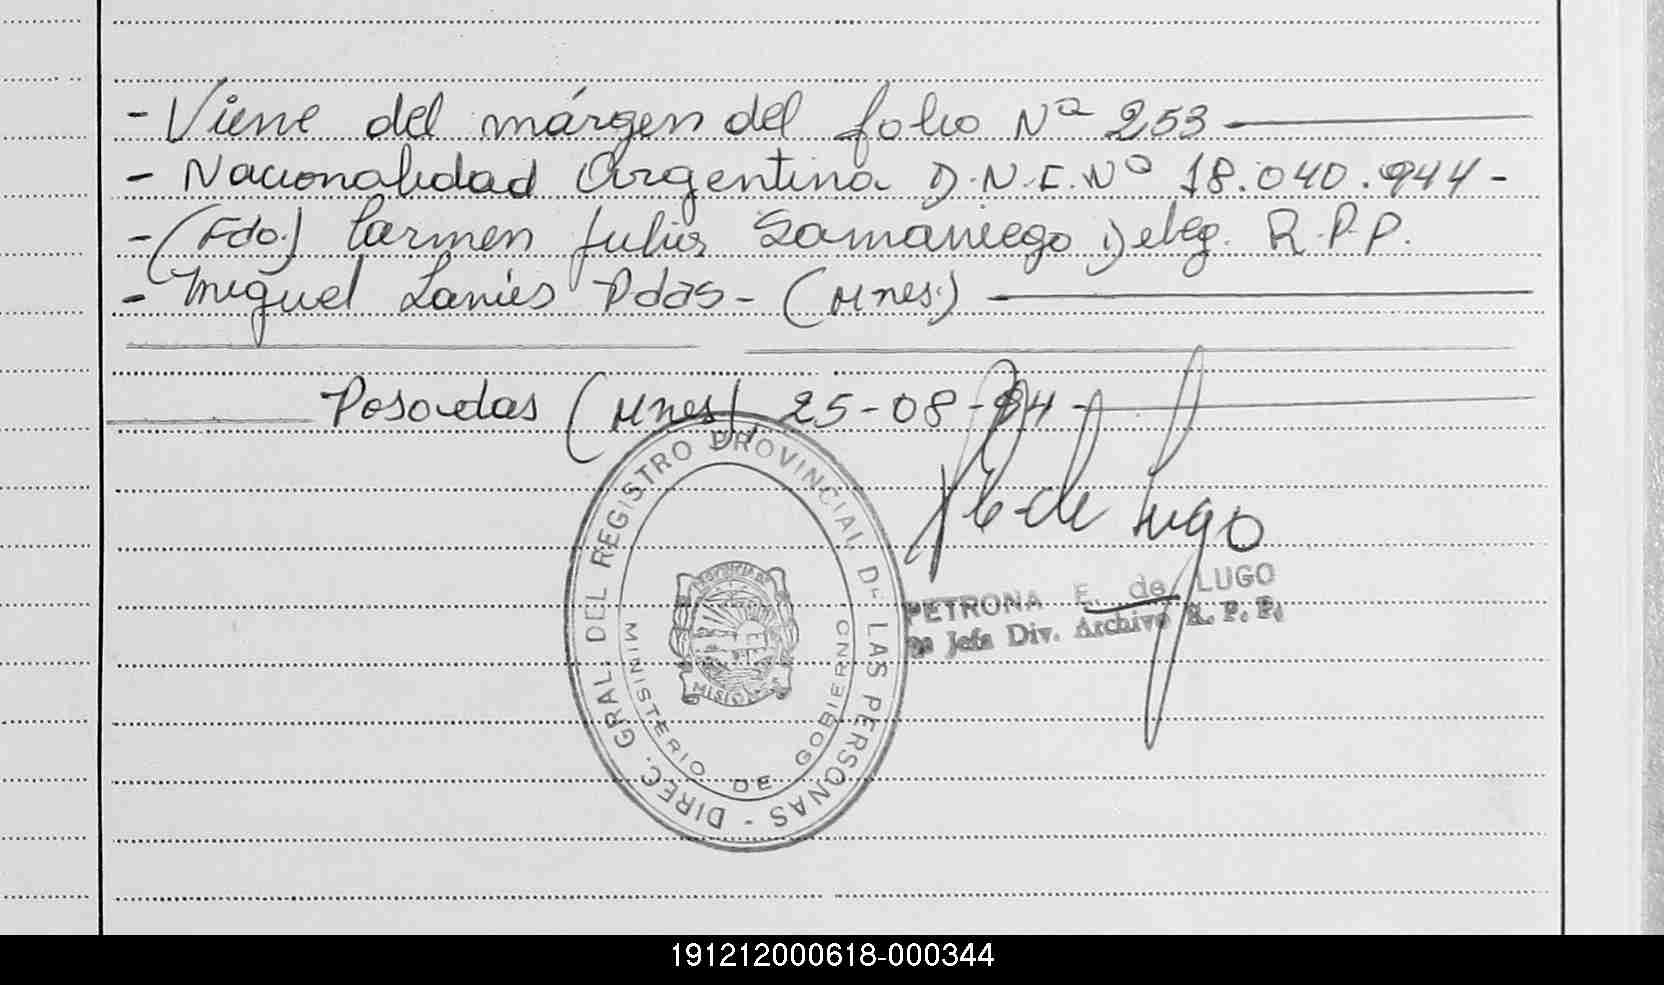 - Viene del márgen del folio Nº 253
- Nacionalidad Argentina D.N.I. Nº 18.040.944 -
- (Fdo.) Carmen Julia Samaniego Deleg. R.P.P.
- Miguel Lanús Pdas - (Mnes.)
Posadas (Mnes), 25-08-94 -
de Lugo
DIREC. GRAL. DEL REGISTRO PROVINCIAL DE LAS PERSONAS -
MINISTERIO DE GOBIERNO
PROVINCIA DE
MISIONES
PETRONA E. de LUGO
Jefa Div. Archivo R. P. P.
191212000618-000344